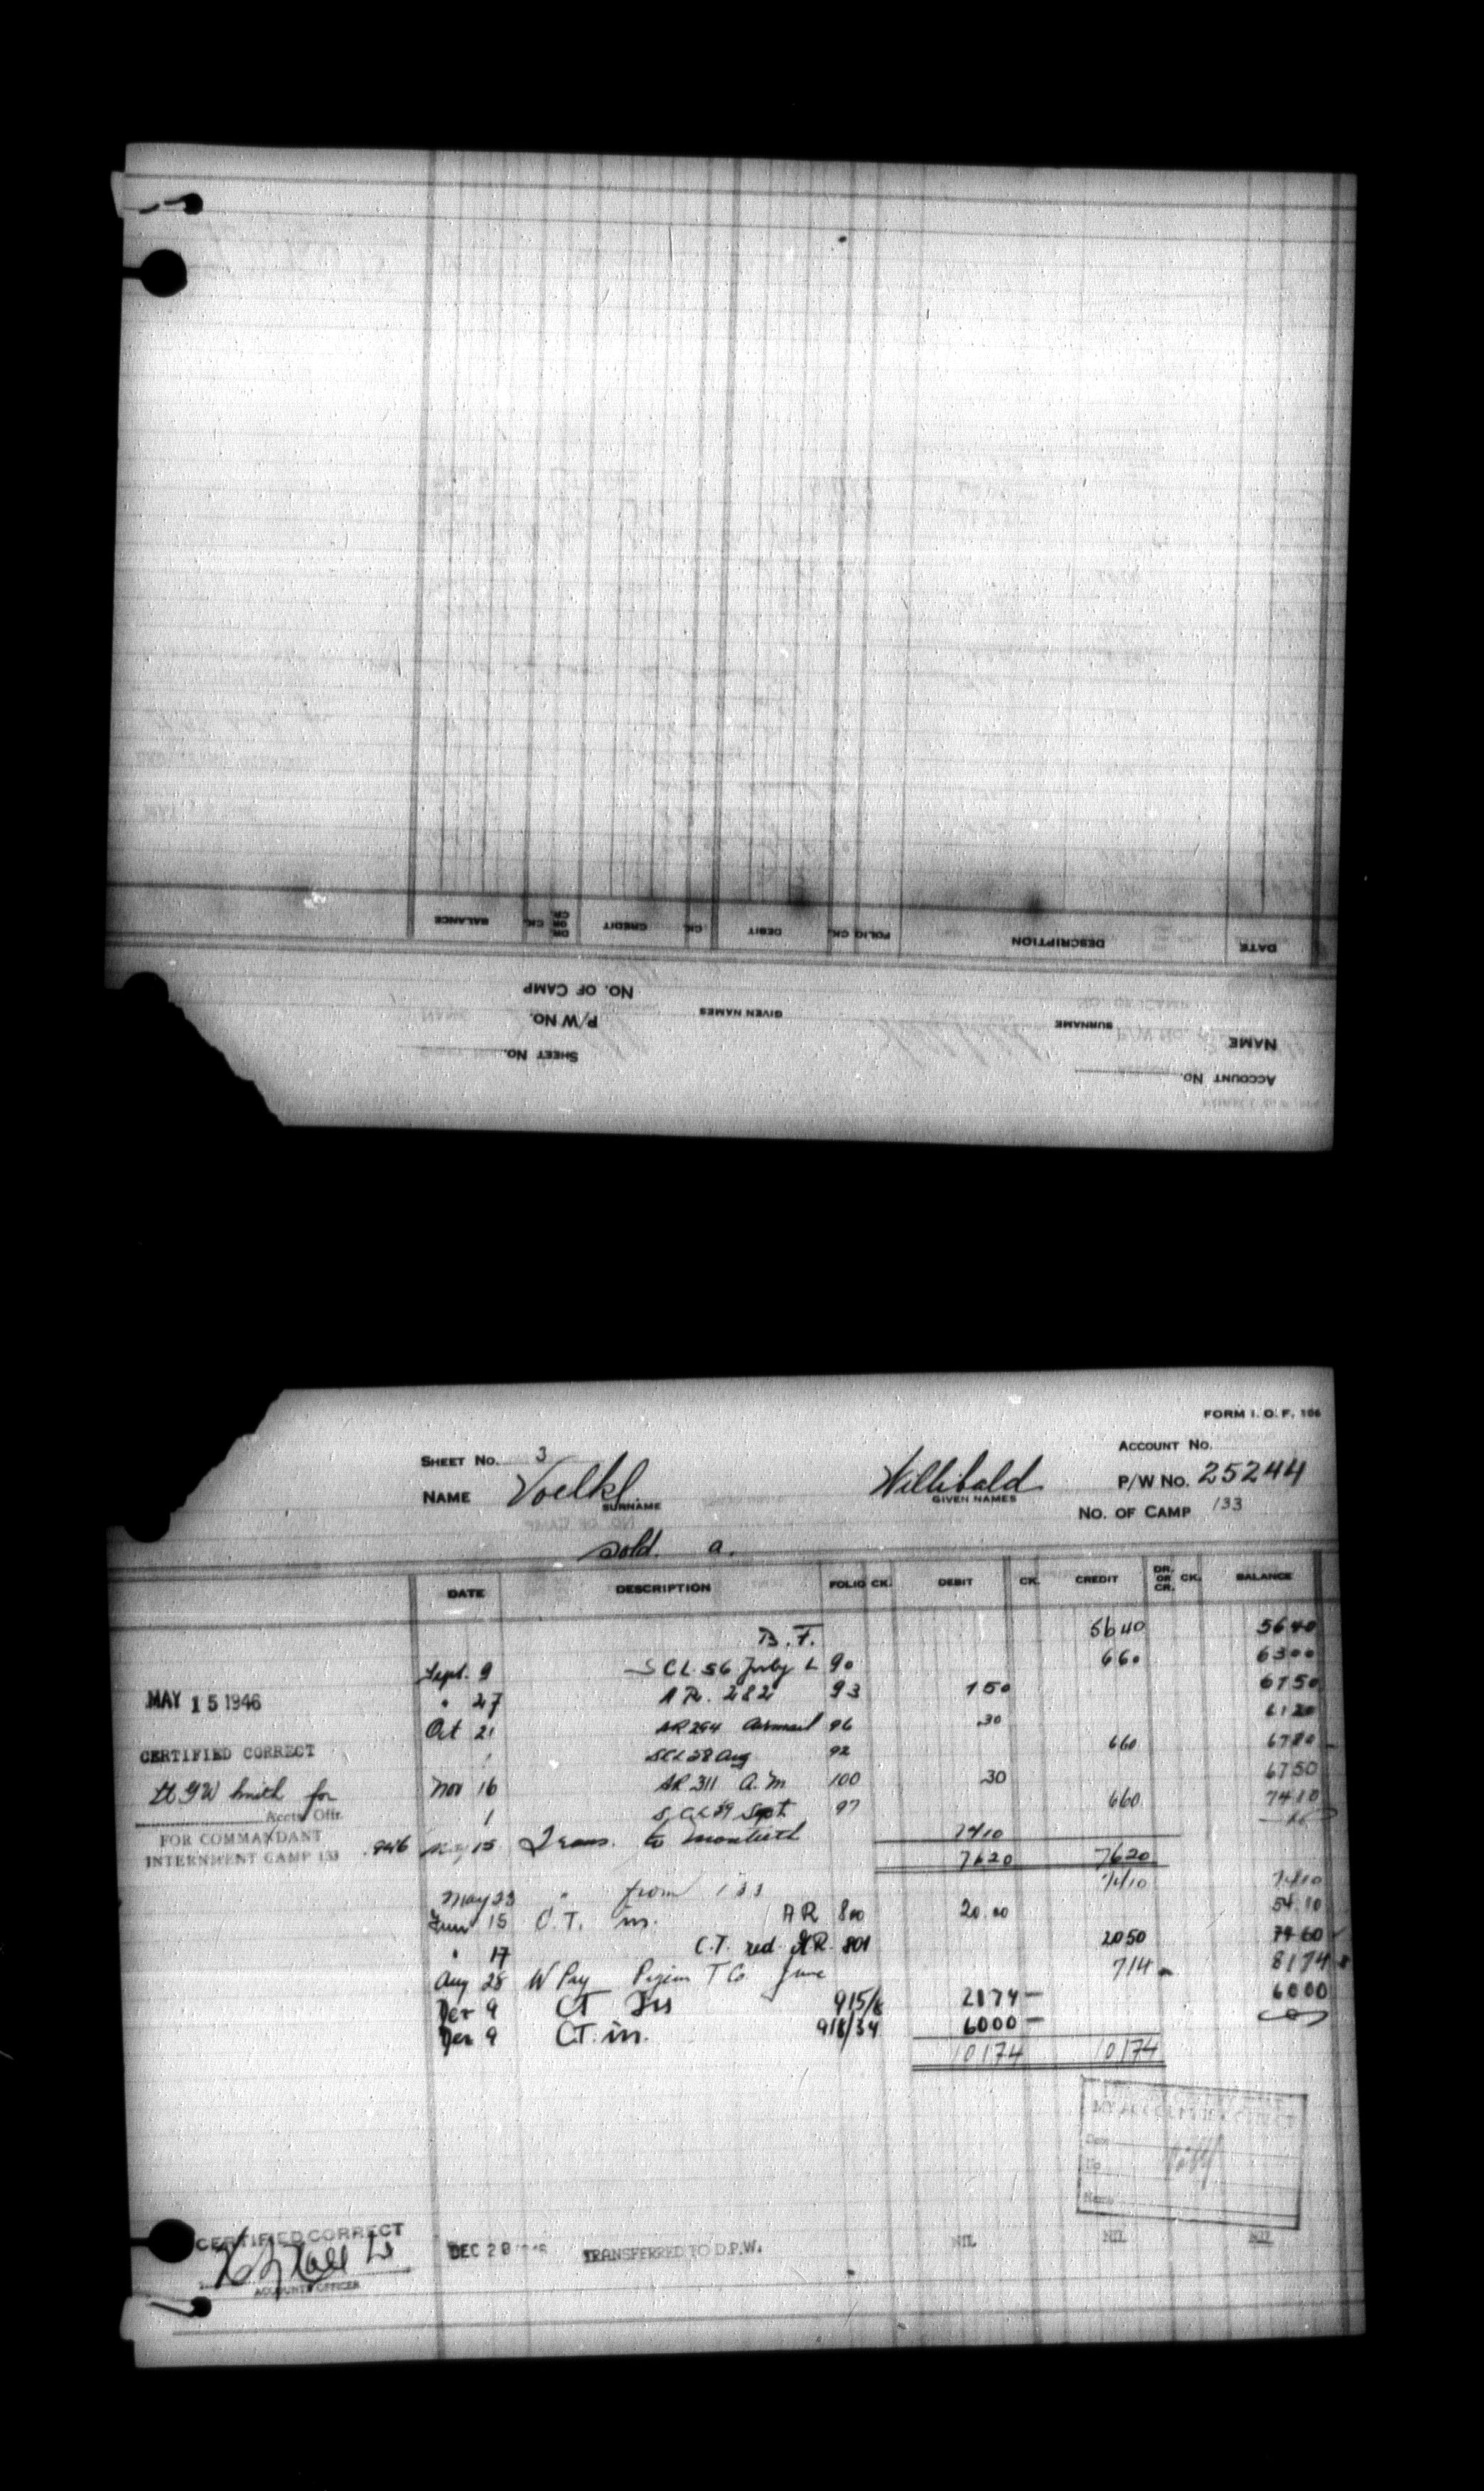 BALANCE CK. DR. OR CR. CREDIT CK. DEBIT CK. FOLIO DESCRIPTION DATE
NO. OF CAMP
P/W NO. GIVEN NAMES SURNAME NAME
SHEET NO. ACCOUNT NO.
FORM I. O. F. 106
SHEET NO. 3 ACCOUNT NO.
NAME Voelkl Willibald P/W NO. 25244
SURNAME GIVEN NAMES
NO. OF CAMP 133
sold. a.
DATE DESCRIPTION FOLIO CK. DEBIT CK. CREDIT DR. OR CR. CK. BALANCE
B.F. 5640 5640
Sept. 9 SCL 56 July 90 660 6300
MAY 15 1946
" 27 AR. 282 93 150 6150
Oct 21 AR 294 Airmail 96 30 6120
CERTIFIED CORRECT
SCL 28 Aug 92 660 6780
Lt GW Smith for
Accts Offr.
Nov 16 AR 311 A.M 100 30 6750
1 SCL 39 Sept 97 660 7410
FOR COMMANDANT
INTERNMENT CAMP 133
1946 May 15 Trans. to Monteith 7410
7620 7620
May 23 " from 133 7410 7410
June 15 C.T. in. AR 800 20.00 54.10
" 17 C.T. red. AR. 801 2050 7460
Aug 28 W Pay Pigeon T Co June 714 8174
Dec 9 CT 915/ 2174 6000
Dec 9 C.T. in. 918/34 6000
10174 10174
CERTIFIED CORRECT
ACCOUNTS OFFICER
DEC 28 TRANSFERRED TO D.P.W. NIL NIL NIL